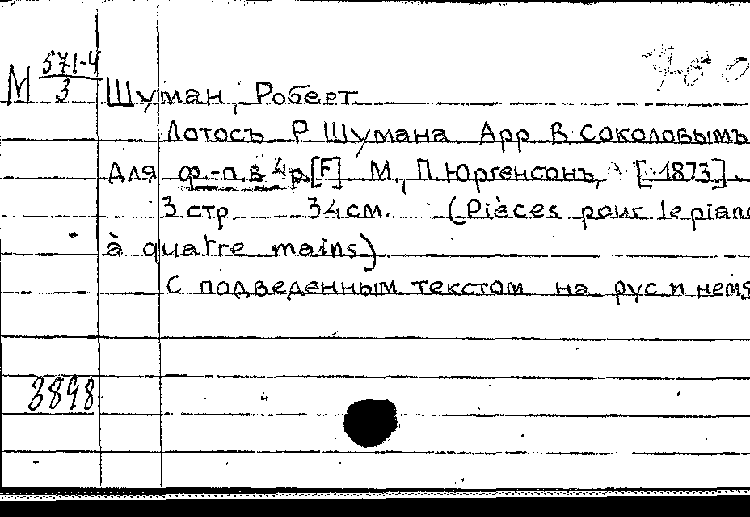 М 571-4/3
780
Шуман, Роберт
Лотосъ Р Шумана Арр В Соколовымъ
для ф.-п. в 4 р. [F] М., П. Юргенсонъ, [1873].
3 стр 34 см. (Pièces pour le piano
à quatre mains)
С подведенным текстом на рус и нем яз
3898